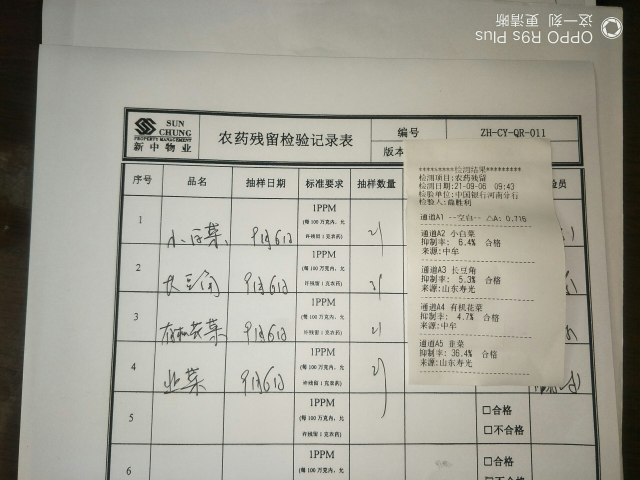 OPPO R9s Plus
这一刻 更清晰
SUN CHUNG
PROPERTY MANAGEMENT
新中物业
农药残留检验记录表
编号
ZH-CY-QR-011
版本
序号
品名
抽样日期
标准要求
抽样数量
验员
1
小白菜
9月6日
1PPM
(每100万克内，允
许残留1克农药)
2
长豆角
9月6日
1PPM
(每100万克内，允
许残留1克农药)
3
有机花菜
9月6日
1PPM
(每100万克内，允
许残留1克农药)
4
韭菜
9月6日
1PPM
(每100万克内，允
许残留1克农药)
5
1PPM
(每100万克内，允
许残留1克农药)
□合格
□不合格
6
1PPM
(每100万克内，允
□合格
□不合格
*********检测结果*********
检测项目:农药残留
检测日期:21-09-06 09:43
检验单位:中国银行河南分行
通道A1 --空白-- △A: 0.716
通道A2 小白菜
抑制率: 6.4% 合格
来源:中牟
通道A3 长豆角
抑制率: 5.3% 合格
来源:山东寿光
通道A4 有机花菜
抑制率: 4.7% 合格
来源:中牟
通道A5 韭菜
抑制率: 36.4% 合格
来源:山东寿光